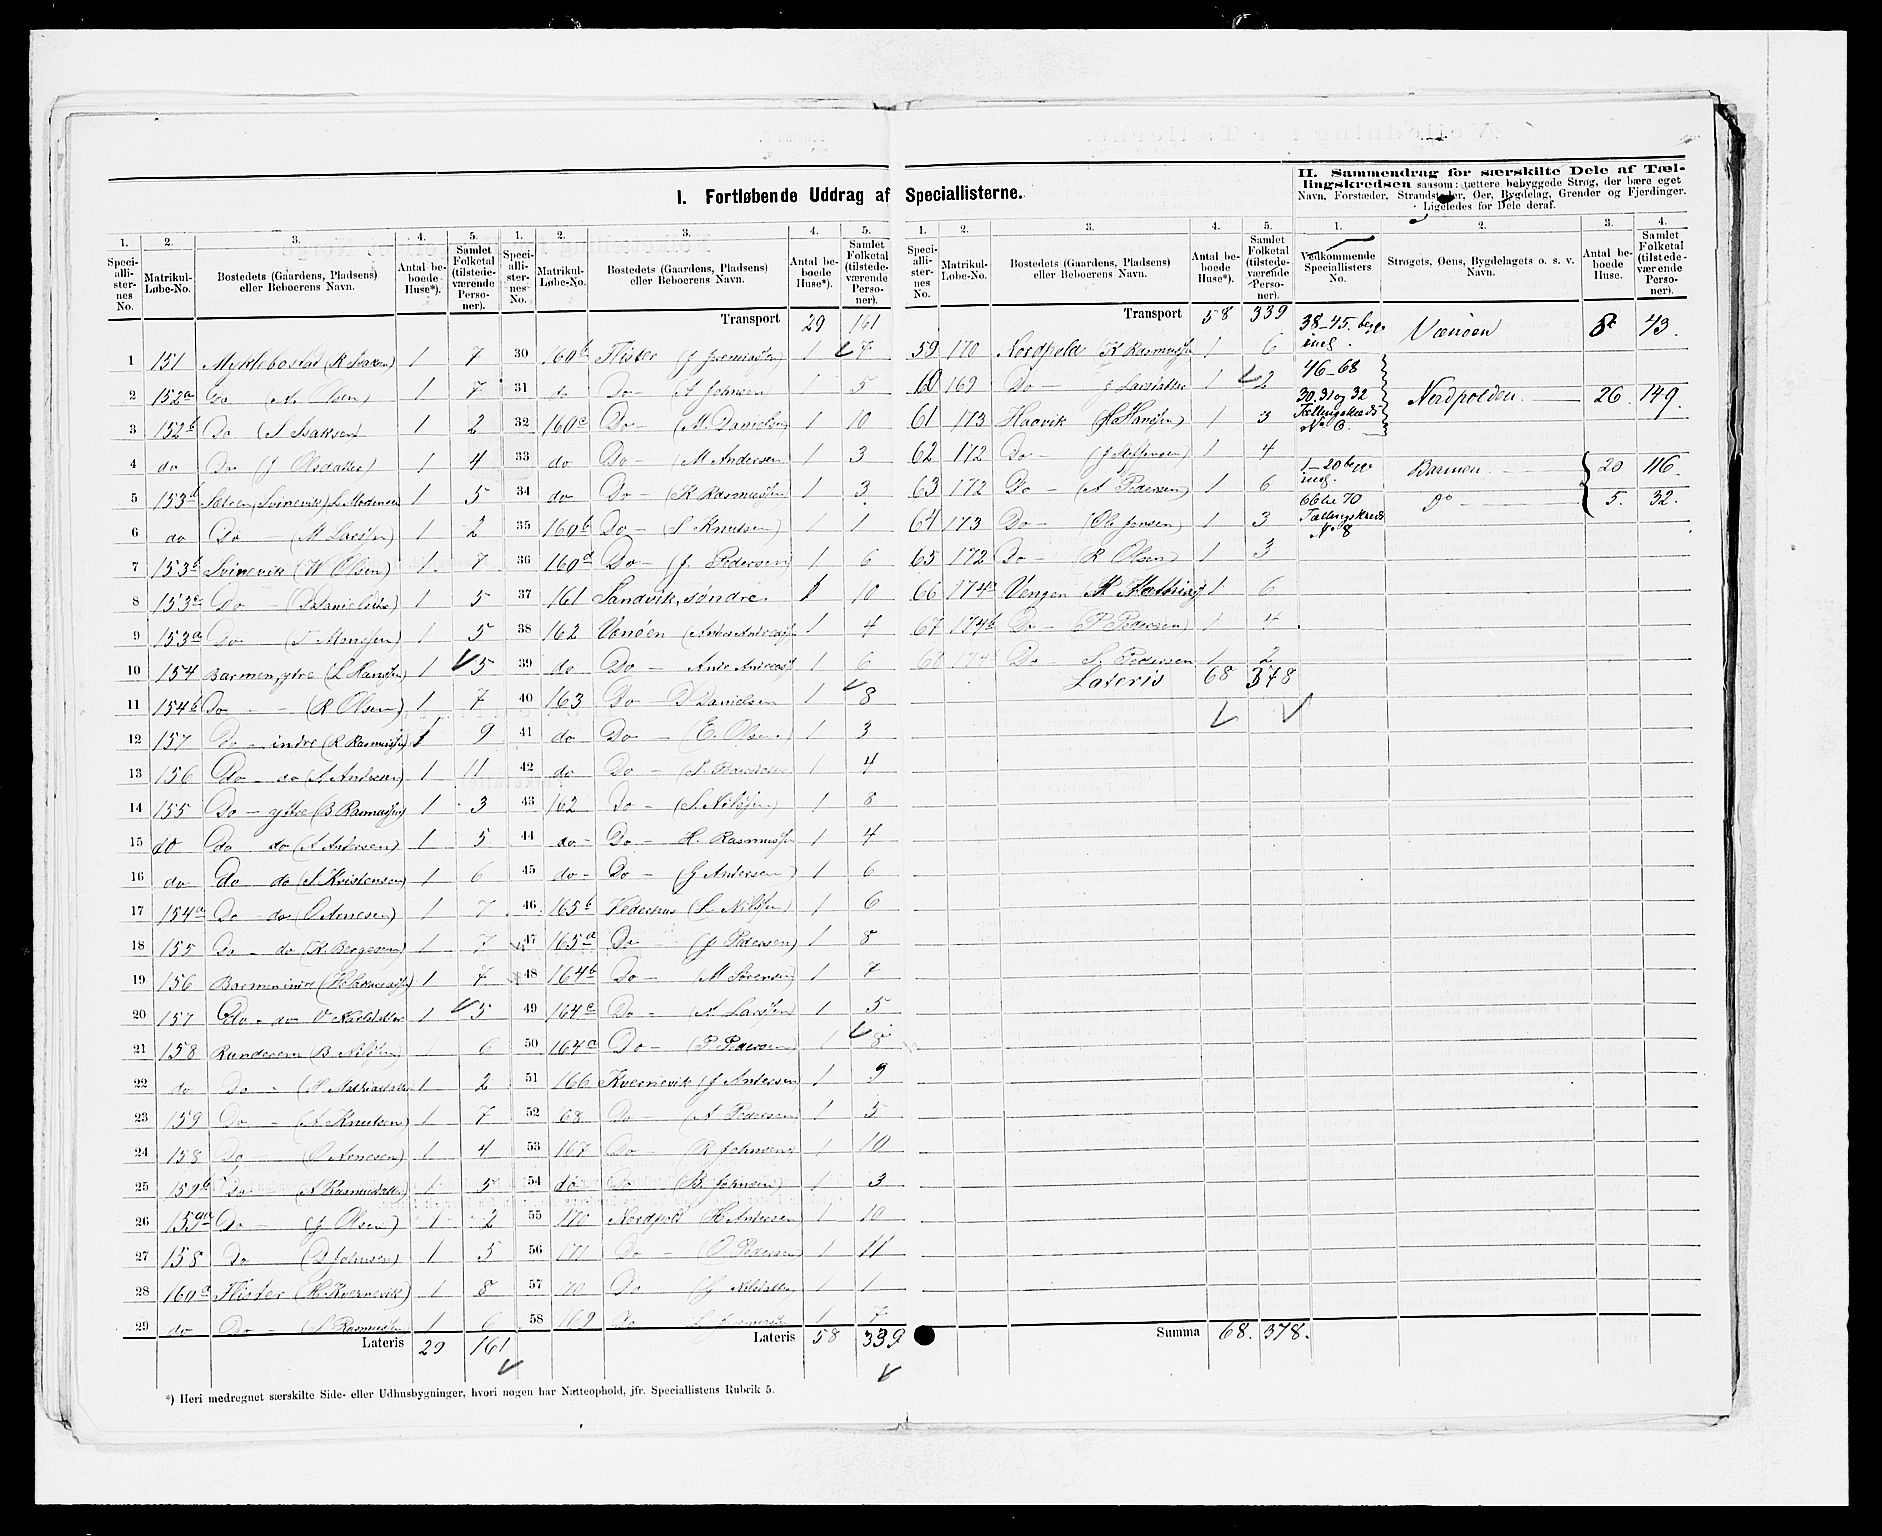 I. Fortløbende Uddrag af Speciallisterne.
II. Sammendrag for særskilte Dele af Tæl-
lingskredsen saasom: tættere bebyggede Strøg, der bære eget
Navn, Forstæder, Strandsteder, Øer, Bygdelag, Grender og Fjerdinger.
Ligeledes for Dele deraf.
1. 2. 3. 4. 5.
Speci-alli-ster-nes No. Matrikul-Løbe-No. Bostedets (Gaardens, Pladsens) eller Beboerens Navn. Antal be-boede Huse*). Samlet Folketal (tilstede-værende Perso-ner).
1 151 Myklebostad (R Isaksen) 1 7
2 152a Do (A. Olsen) 1 7
3 152b Do (S Isaksen 1 2
4 do Do (J Olsdatter) 1 4
5 153b Sætren (Svinevik) 1 5
6 do Do — (M Larsen) 1 2
7 153b Svinevik (W Olsen) 1 7
8 153c Do — 1 5
9 153a Do — 1 5
10 154 Barmen, ytre (L Hansen) 1 5
11 154b Do - - (R Olsen) 1 7
12 157 Do - indre (R Rasmussen) 1 9
13 156 Do - do (A Andersen) 1 11
14 155 Do - ytre (B Rasmussen) 1 3
15 do do do (A Andersen) 1 5
16 do Do do (S Kristensen) 1 6
17 154a Do - do (O Arnesen) 1 7
18 155 Do - do (K Bergesen) 1 7
19 156 Barmen indre 1 7
20 157 Do - do 1 5
21 158 Runderem (B Nilsen) 6
22 do Do - 1 2
23 159 Do - (A Knutsen) 1 7
24 158 Do (O Arnesen) 1 4
25 159b Do (A Rasmusdatter) 1 5
26 159a Do — (J Olsen) 1 2
27 158 Do (D Johnsen) 1 5
28 160a Flister (H. Kvernevik) 1 8
29 do Do - (S Rasmussen 1 6
Lateris 29 161
1. 2. 3. 4. 5.
Speci-alli-ster-nes No. Matrikul-Løbe-No. Bostedets (Gaardens, Pladsens) eller Beboerens Navn. Antal be-boede Huse*). Samlet Folketal (tilstede-værende Perso-ner).
Transport 29 161
30 160b Flister 1 7
31 do Do- (A Johnsen) 5
32 160c Do- (M. Danielsen) 1 10
33 do Do- (M Andersen) 1 3
34 do Do - (K Rasmussen) 1 3
35 160b Do- (S Knutsen) 1 1
36 160d Do- (J. Pedersen) 1 6
37 161 Sandvik, søndre. 1 10
38 162 Vænøen 1 4
39 do Do - 1 6
40 163 Do D Danielsen 1 8
41 do Do - (E. Olsen.) 1 3
42 do Do - 1 4
43 162 Do - (S Nilsen) 1 8
44 do- Do- H. Rasmussen 1 4
45 do- Do - (J Andersen) 1 6
46 165b Vedernes (L Nilsen) 1 6
47 165a Do (J Pedersen) 1 8
48 164b Do - M Sørensen 1 7
49 164c Do - (A Larsen) 1 5
50 164a Do - (P. Pedersen) 1 8
51 166 Kvernevik (J Andersen 1 9
52 68 Do - (A Pedersen 1 5
53 167 Do - (R Johnsen) 1 10
54 do Do (B. Johnsen) 1 3
55 170 Nordpold (H Andersen) 1 10
56 171 Do - (O Pedersen) 1 11
57 70 Do (J Nilsdatter) 1 1
58 169 Do 1 7
Lateris 58 339
1. 2. 3. 4. 5.
Speci-alli-ster-nes No. Matrikul-Løbe-No. Bostedets (Gaardens, Pladsens) eller Beboerens Navn. Antal be-boede Huse*). Samlet Folketal (tilstede-værende Perso-ner).
Transport 58 339
59 170 Nordpold (K Rasmussen 1 6
60 169 Do - J Larsdatter 1 2
61 173 Haavik (H Hansen) 1 3
62 172 Do - (J Steffensen) 1 4
63 172 Do - (A Pedersen) 1 6
64 173 Do- (Ole Jensen) 1 3
65 172 Do- (R Olsen) 1 3
66 174a Vengen 1 6
67 174b Do - P Pedersen) 1 4
68 174 Do S. Pedersen 1 2
Lateris 68 378
Summa 68. 378.
1. 2. 3. 4.
Vedkommende Speciallisters No. Strøgets, Øens, Bygdelagets o. s. v. Navn. Antal be-boede Huse. Samlet Folketal (tilstede-værende Perso-ner).
38-45. begge incl. Vænøen 8 43.
46-68
30, 31 og 32 Tællingskreds No 6. Nordpolden. 26. 149.
1-20 begge incl. Barmøn. 20 116.
66 til 70 Tællingskreds No 8 Do 5. 32.
*) Heri medregnet særskilte Side- eller Udhusbygninger, hvori nogen har Natteophold, jfr. Speciallistens Rubrik 5.